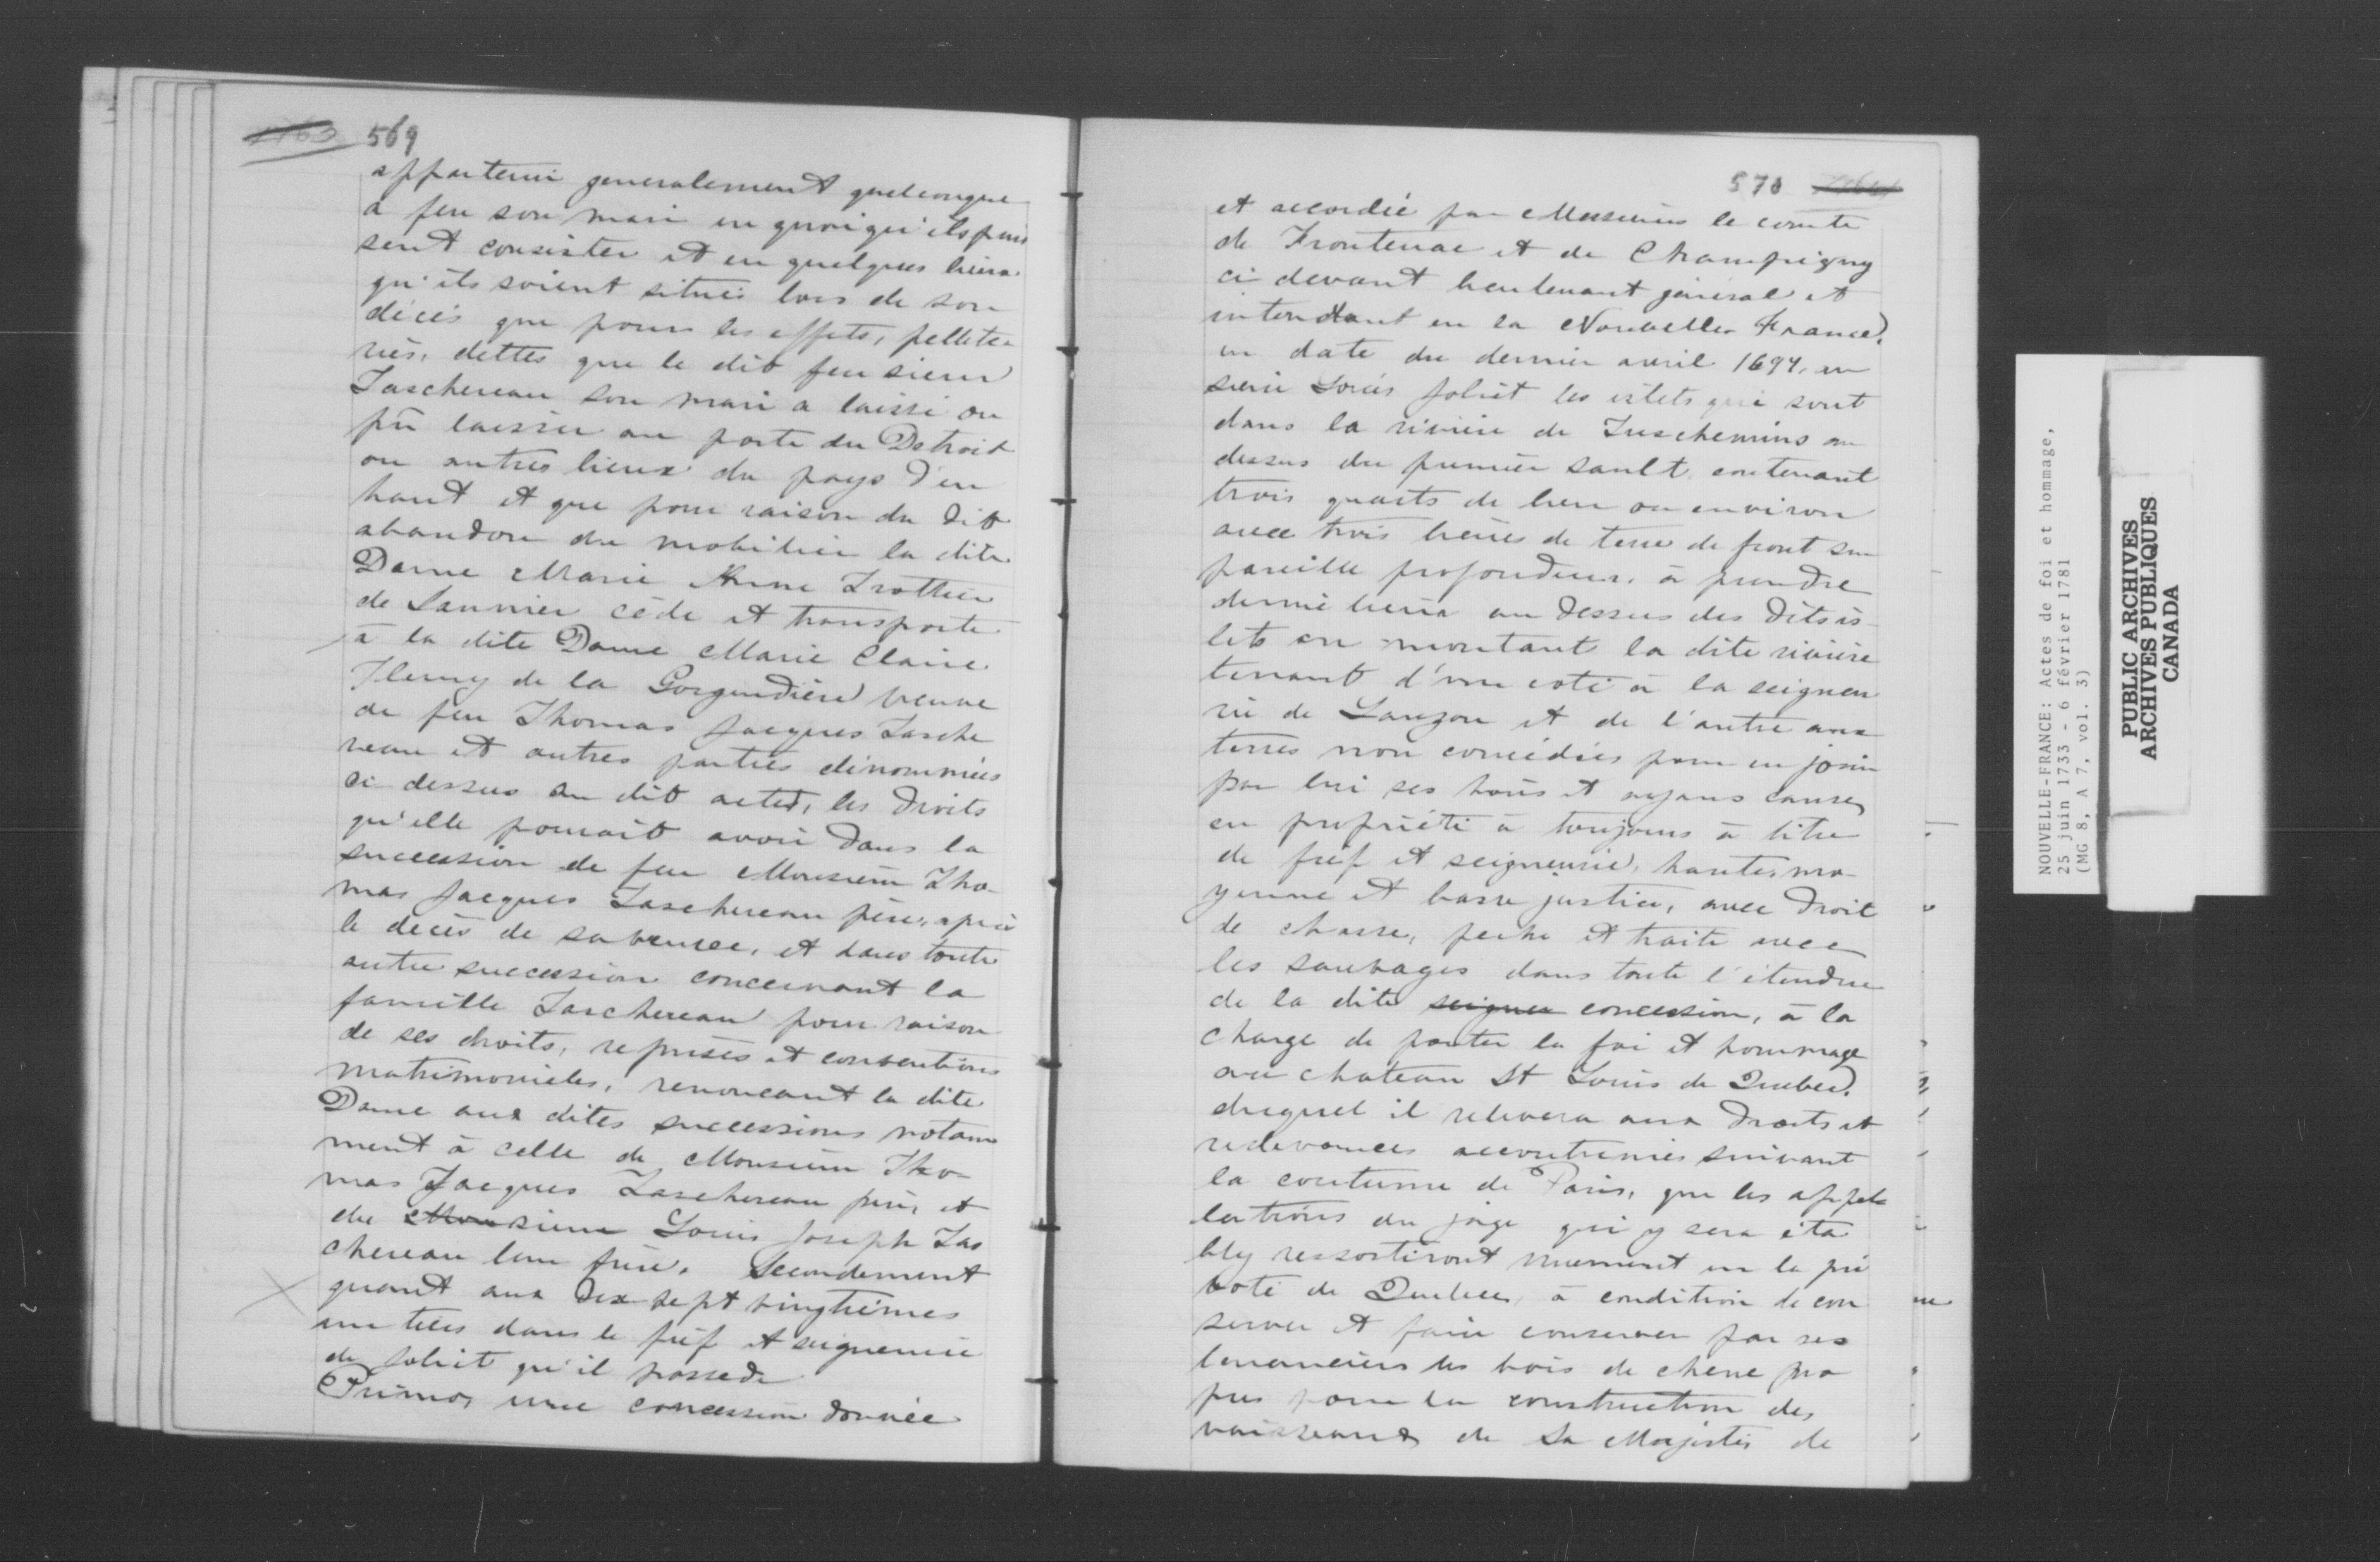 569
appartenir generalement quelconque
a feu son mari en quoi qu'ils puis
sent consister et en quelques lieux
qu'ils soient situés lors de son
décés que pour les effets, pellete-
ries, dettes que le dit feu sieur
Taschereau son mari a laissé ou
pû laisser au poste du Detroit
ou autres lieux du pays d'en
haut et que pour raison du dit
abandon du mobilier la dite
Dame Marie Anne Trottier
de Saunier céde et transporte
à la dite Dame Marie Claire
Fleury de la Gorgendière veuve
de feu Thomas Jacques Tasche
reau et autres parties dénommées
ci dessus au dit acte, les droits
qu'elle pourrait avoir dans la
succession de feu Monsieur Tho-
mas Jacques Taschereau père, après
le décès de sa veuve, et dans toute
autre succession concernant la
famille Taschereau pour raison
de ses droits, reprises et conventions
matrimoniales, renoncant la dite
Dame aux dites successions notam
ment à celle de Monsieur Tho-
mas Jacques Taschereau père, et
du Monsieur Louis Joseph Tas
chereau leur frère. Secondement
quant aux dix sept vingtièmes
un tiers dans le fief et seigneurie
de Joliet qu'il possede
Primo, une concession donnée
570
et accordée par Messieurs le comte
de Frontenac et de Champigny
ci devant lieutenant général et
intendant en la Nouvelle France,
en date du dernier avril 1697, au
sieur Louis Joliet les islets qui sont
dans la rivière de Tuschemins au
dessus du premier sault contenant
trois quarts de lieu ou environ
avec trois lieues de terre de front sur
pareille profondeur, à prendre
demie lieue au dessus des dits is-
lets en montant la dite rivière
tenant d'une coté à la seigneu
rie de Lauzon et de l'autre aux
terres non concédées pour en jouir
par lui ses hoirs et ayans cause
en propriété à toujours à titre
de fief et seigneurie, haute, mo-
yenne et basse justice, avec droit
de chasse, peche et traite avec
les sauvages dans toute l'étendue
de la dite seigneu concession, à la
charge de porter la foi et hommage
au chateau St Louis de Quebec,
duquel il relevera aux droits et
redevances accoutumées suivant
la coutume de Paris, que les appel
lations du juge qui y sera éta
bly ressortiront nuement en la pré
voté de Quebec, à condition de con
server et faire conserver par ses
tenanciers les bois de chene pro
pres pour la construction des
vaisseaux de Sa Majestés de
NOUVELLE-FRANCE: Actes de foi et hommage,
25 juin 1733 - 6 février 1781
(MG 8, A 7, vol. 3)
PUBLIC ARCHIVES
ARCHIVES PUBLIQUES
CANADA